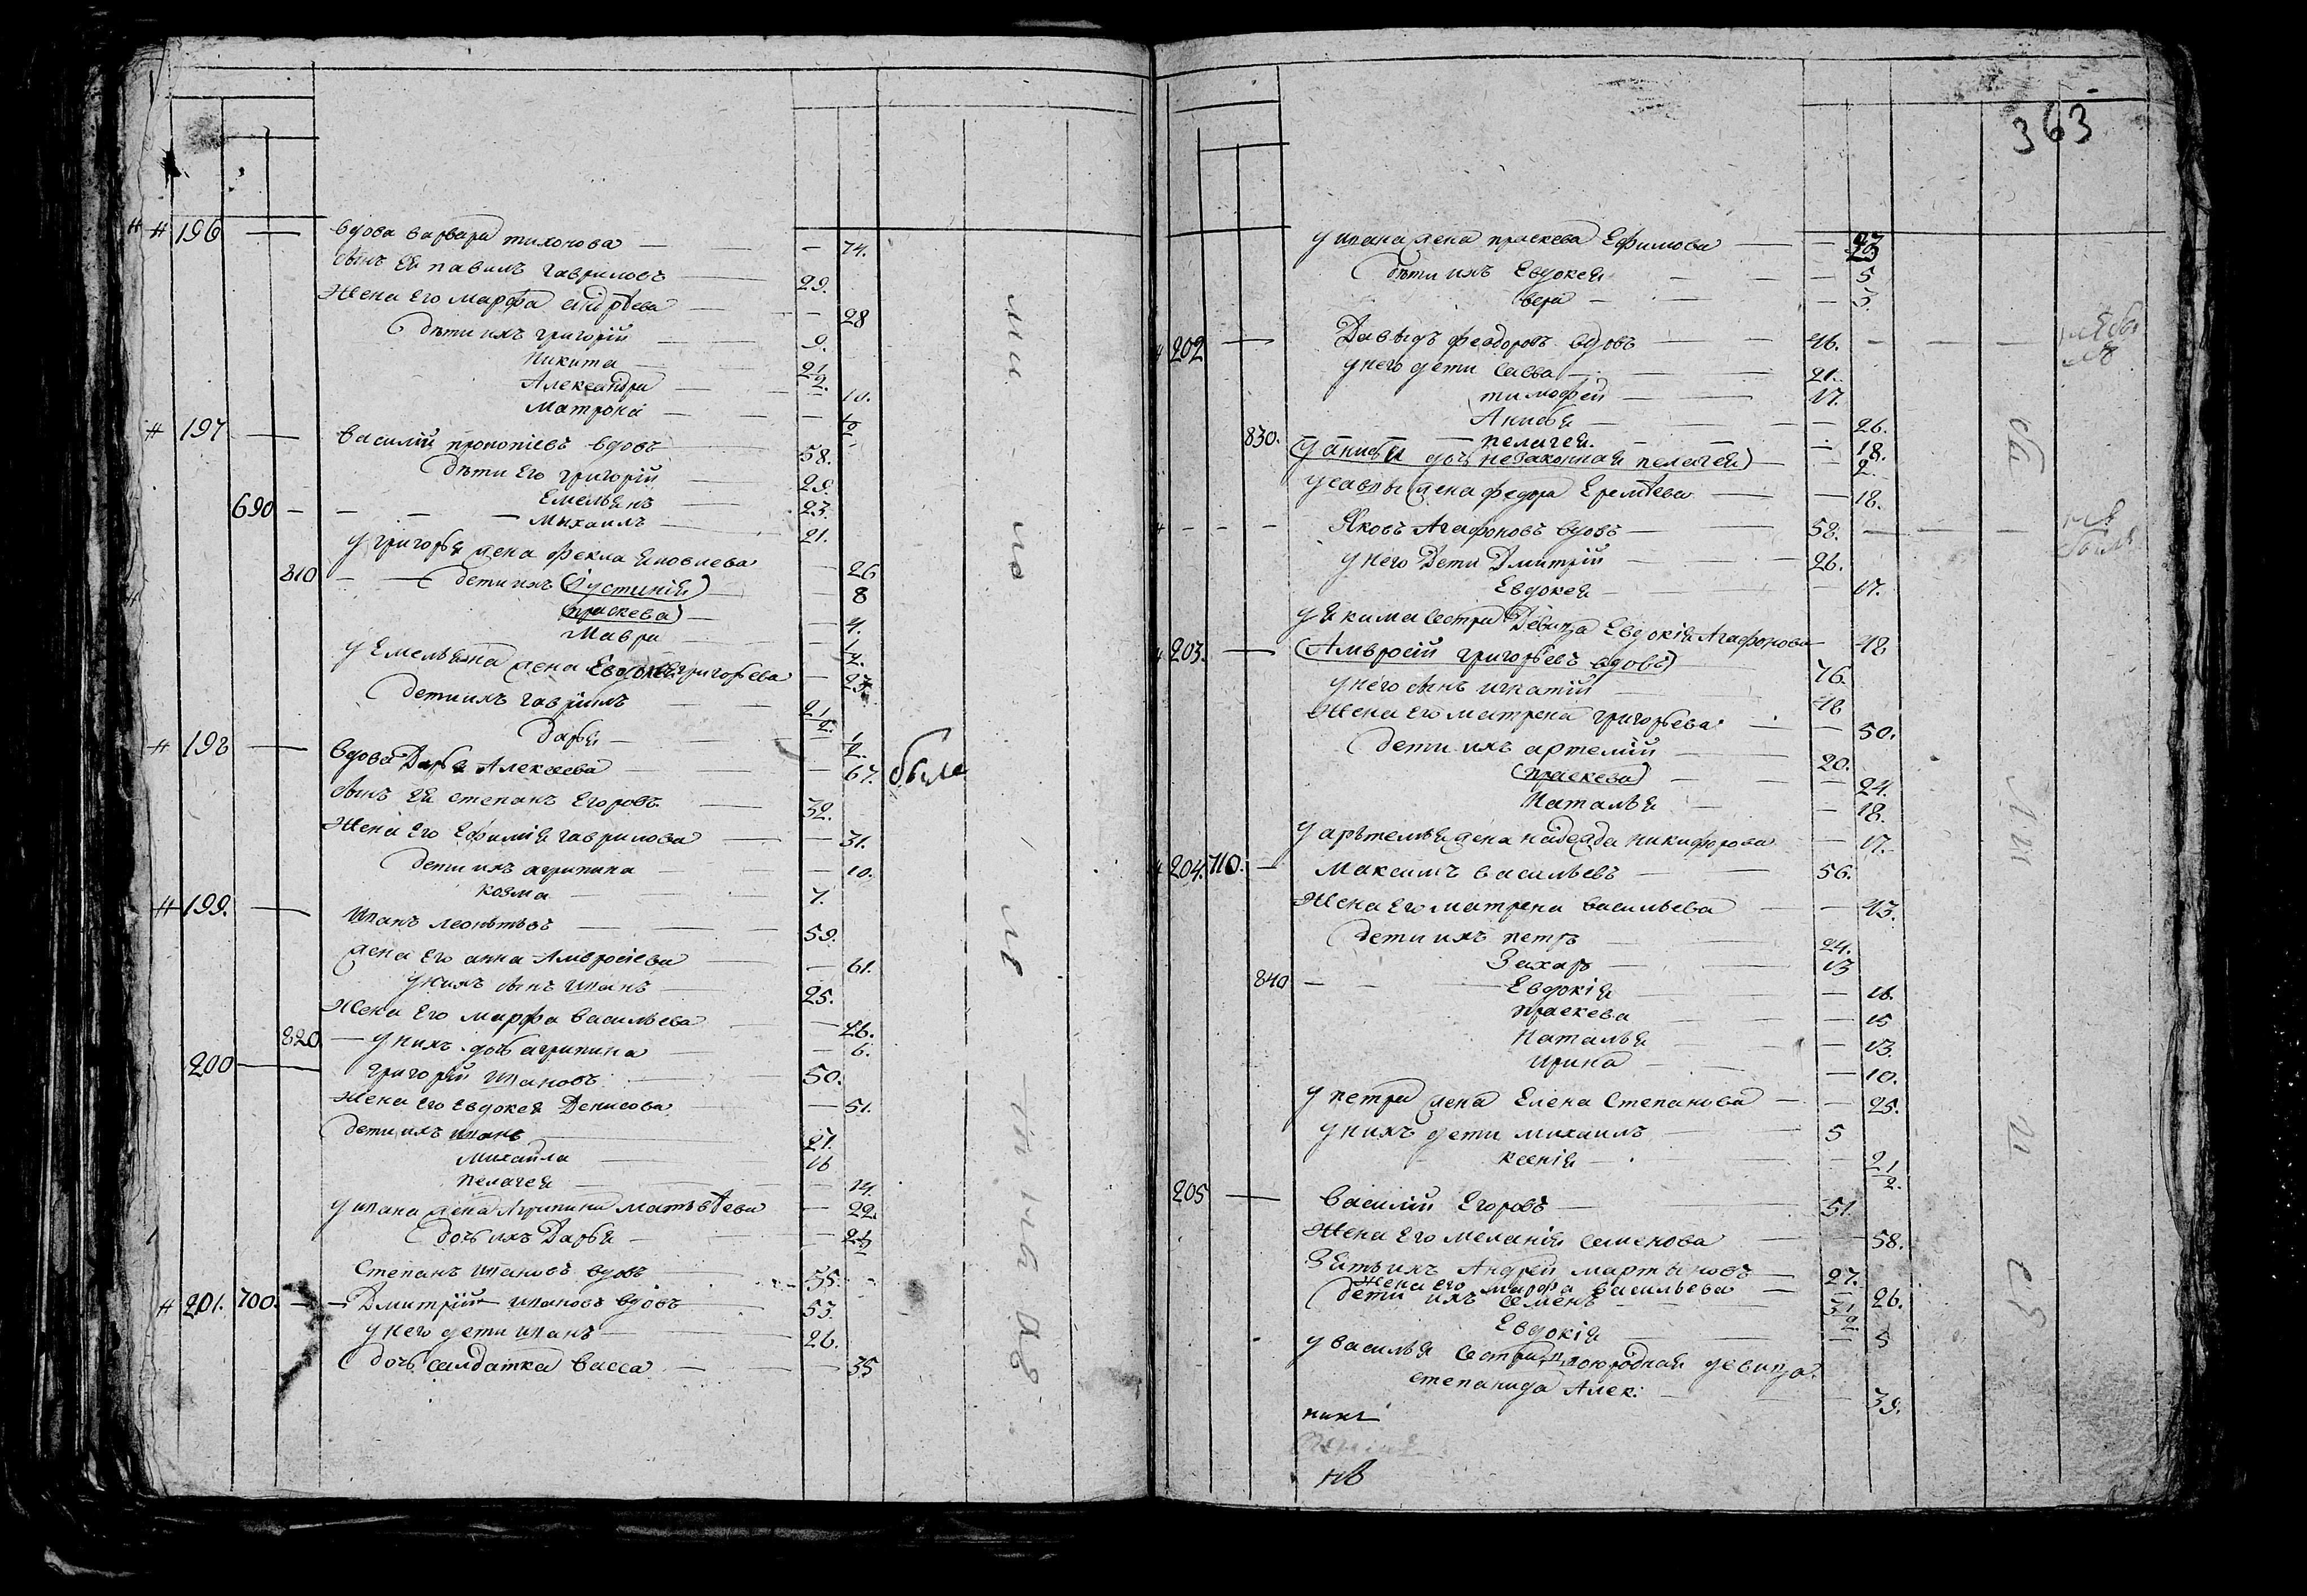 196 — вдова варвара тихонова — 74.
сынъ ея павилъ гавриловъ — 29.
жена его марфа андрѣева — 28
дѣти ихъ григорій — 9.
никита — 2 1/2
Александра —
Матрона —
197 — василій прокопіевъ вдовъ 58.
дѣти его григорій 29.
Емельянъ 23.
690 — Михаилъ — 21.
у григорья жена фекла яковлева — 26
810 — дети ихъ устинія — 8
праскева — 4.
Мавра — 1/2.
у Емельяна жена Евдокея григорьева — 23.
дети ихъ гаврилъ — 2 1/2.
дарья — 1/2.
198 — вдова Дарья Алексеева — 67. была
сынъ ея степанъ Егоровъ — 32.
жена его Ефимія гаврилова — 31.
дети ихъ агрипина — 10.
козма — 7.
199. — Иванъ леонтьевъ — 59.
жена его анна Амвросіева — 61.
у нихъ сынъ иванъ — 25.
жена его марфа васильева — 26.
820 — у нихъ дочь агрипина — 6.
200 — григорій ивановъ — 50.
жена его евдокея Денисова — 51.
дети ихъ иванъ — 21.
михайла — 16
пелагея — 14.
у ивана жена Агрипина матвѣева — 22.
дочь ихъ Дарья —
Степанъ ивановъ вдовъ — 55.
201. 700. — Дмитрій ивановъ вдовъ 53.
у него дети иванъ — 26.
дочь салдатка васса — 35
363
у ивана жена праскева Ефимова —
дѣти ихъ Евдокея — 5
вера — 3.
202 — Давыдъ феодоровъ вдовъ — 46. — небылъ
у него дети савва — 21.
тимофей — 17.
Анисья — 26.
830. — пелагея. — 18.
у анисьи дочь незаконная пелагея — 2.
у саввы жена федора Еремѣева — 18.
Яковъ Агафоновъ вдовъ — 58. — не былъ
у него Дети Дмитрій — 26.
Евдокея — 17.
у якима сестра Девица Евдокія Агафонова — 48
203. — Амвросій григорьевъ вдовъ 76.
у него сынъ игнатій — 48
жена его матрена григорьева — 50.
дети ихъ артемій — 20.
праскева — 24.
Наталья — 18.
у артемья жена надежда никифорова — 17.
204. 710. — Максимъ васильевъ — 56.
жена его матрена васильева — 43.
дети ихъ петръ — 24.
Захаръ — 13
840 — Евдокія — 16.
праскева — 15
Наталья — 13.
ирина — 10.
у петра жена Елена Степанова — 25.
у нихъ дети михаилъ — 5
ксенія — 2 1/2.
205 — василій Егоровъ — 51.
жена его меланія семенова — 58.
Зять ихъ Андрей мартыновъ — 27.
жена его марфа васильева — 26.
дети ихъ семенъ — 3 1/2
Евдокія — 5
у василья сестра двоюродная девица
степанида Алек: — 39.